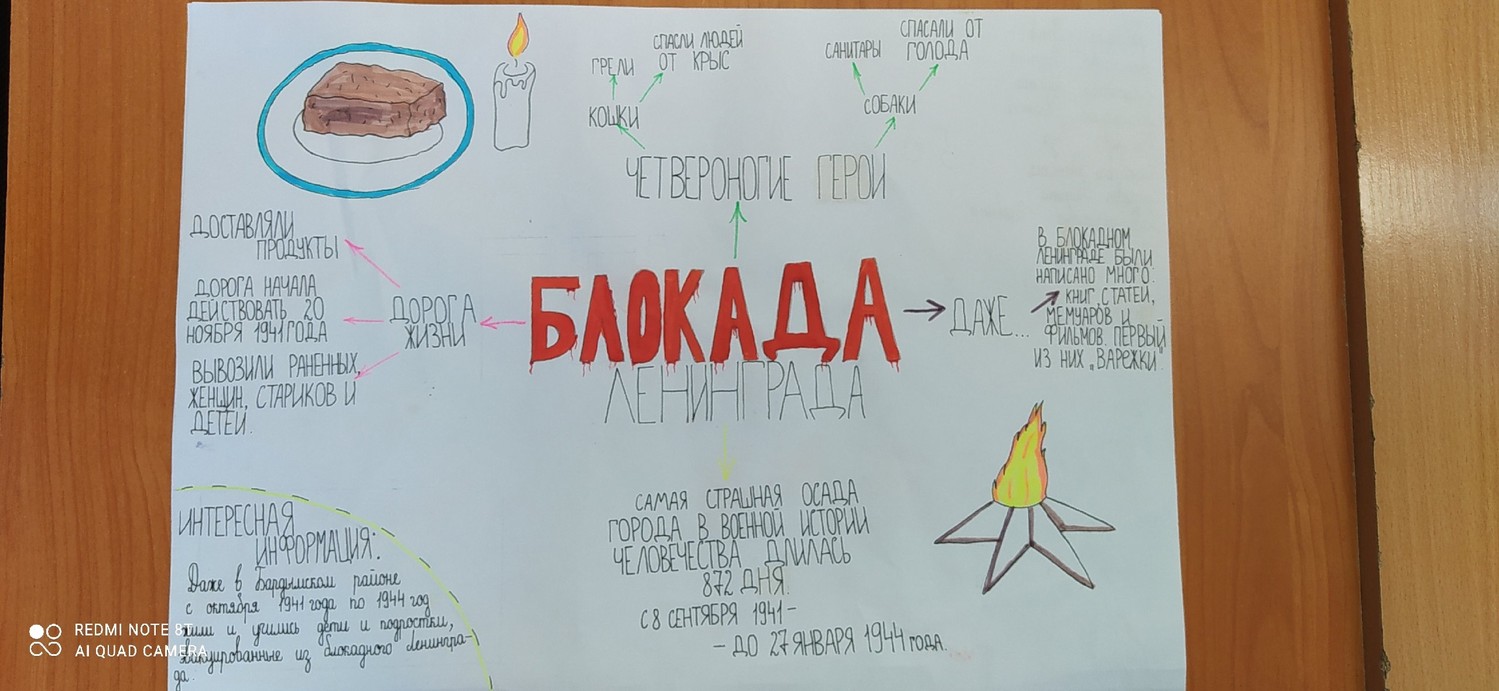 ГРЕЛИ
СПАСЛИ ЛЮДЕЙ
ОТ КРЫС
САНИТАРЫ
СПАСАЛИ ОТ
ГОЛОДА
КОШКИ
СОБАКИ
ЧЕТВЕРОНОГИЕ ГЕРОИ
ДОСТАВЛЯЛИ
ПРОДУКТЫ
ДОРОГА НАЧАЛА
ДЕЙСТВОВАТЬ 20
НОЯБРЯ 1941 ГОДА
ВЫВОЗИЛИ РАНЕННЫХ,
ЖЕНЩИН, СТАРИКОВ И
ДЕТЕЙ.
ДОРОГА
ЖИЗНИ
БЛОКАДА
ЛЕНИНГРАДА
ДАЖЕ...
В БЛОКАДНОМ
ЛЕНИНГРАДЕ БЫЛИ
НАПИСАНО МНОГО:
КНИГ, СТАТЕЙ,
МЕМУАРОВ И
ФИЛЬМОВ. ПЕРВЫЙ
ИЗ НИХ „ВАРЕЖКИ".
САМАЯ СТРАШНАЯ ОСАДА
ГОРОДА В ВОЕННОЙ ИСТОРИИ
ЧЕЛОВЕЧЕСТВА ДЛИЛАСЬ
872 ДНЯ.
С 8 СЕНТЯБРЯ 1941 –
– ДО 27 ЯНВАРЯ 1944 ГОДА.
ИНТЕРЕСНАЯ
ИНФОРМАЦИЯ:
Даже в Бардымском районе
с октября 1941 года по 1944 год
жили и учились дети и подростки,
эвакуированные из блокадного Ленингра-
да.
REDMI NOTE 8T
AI QUAD CAMERA